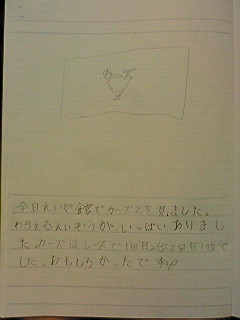 カーズ
今日えいが館でカーズ2を見ました。
わらえるえいぞうが、いっぱいありまし
た。カーズはレースで1回目2位2回目1位で
した。おもしろかったですね